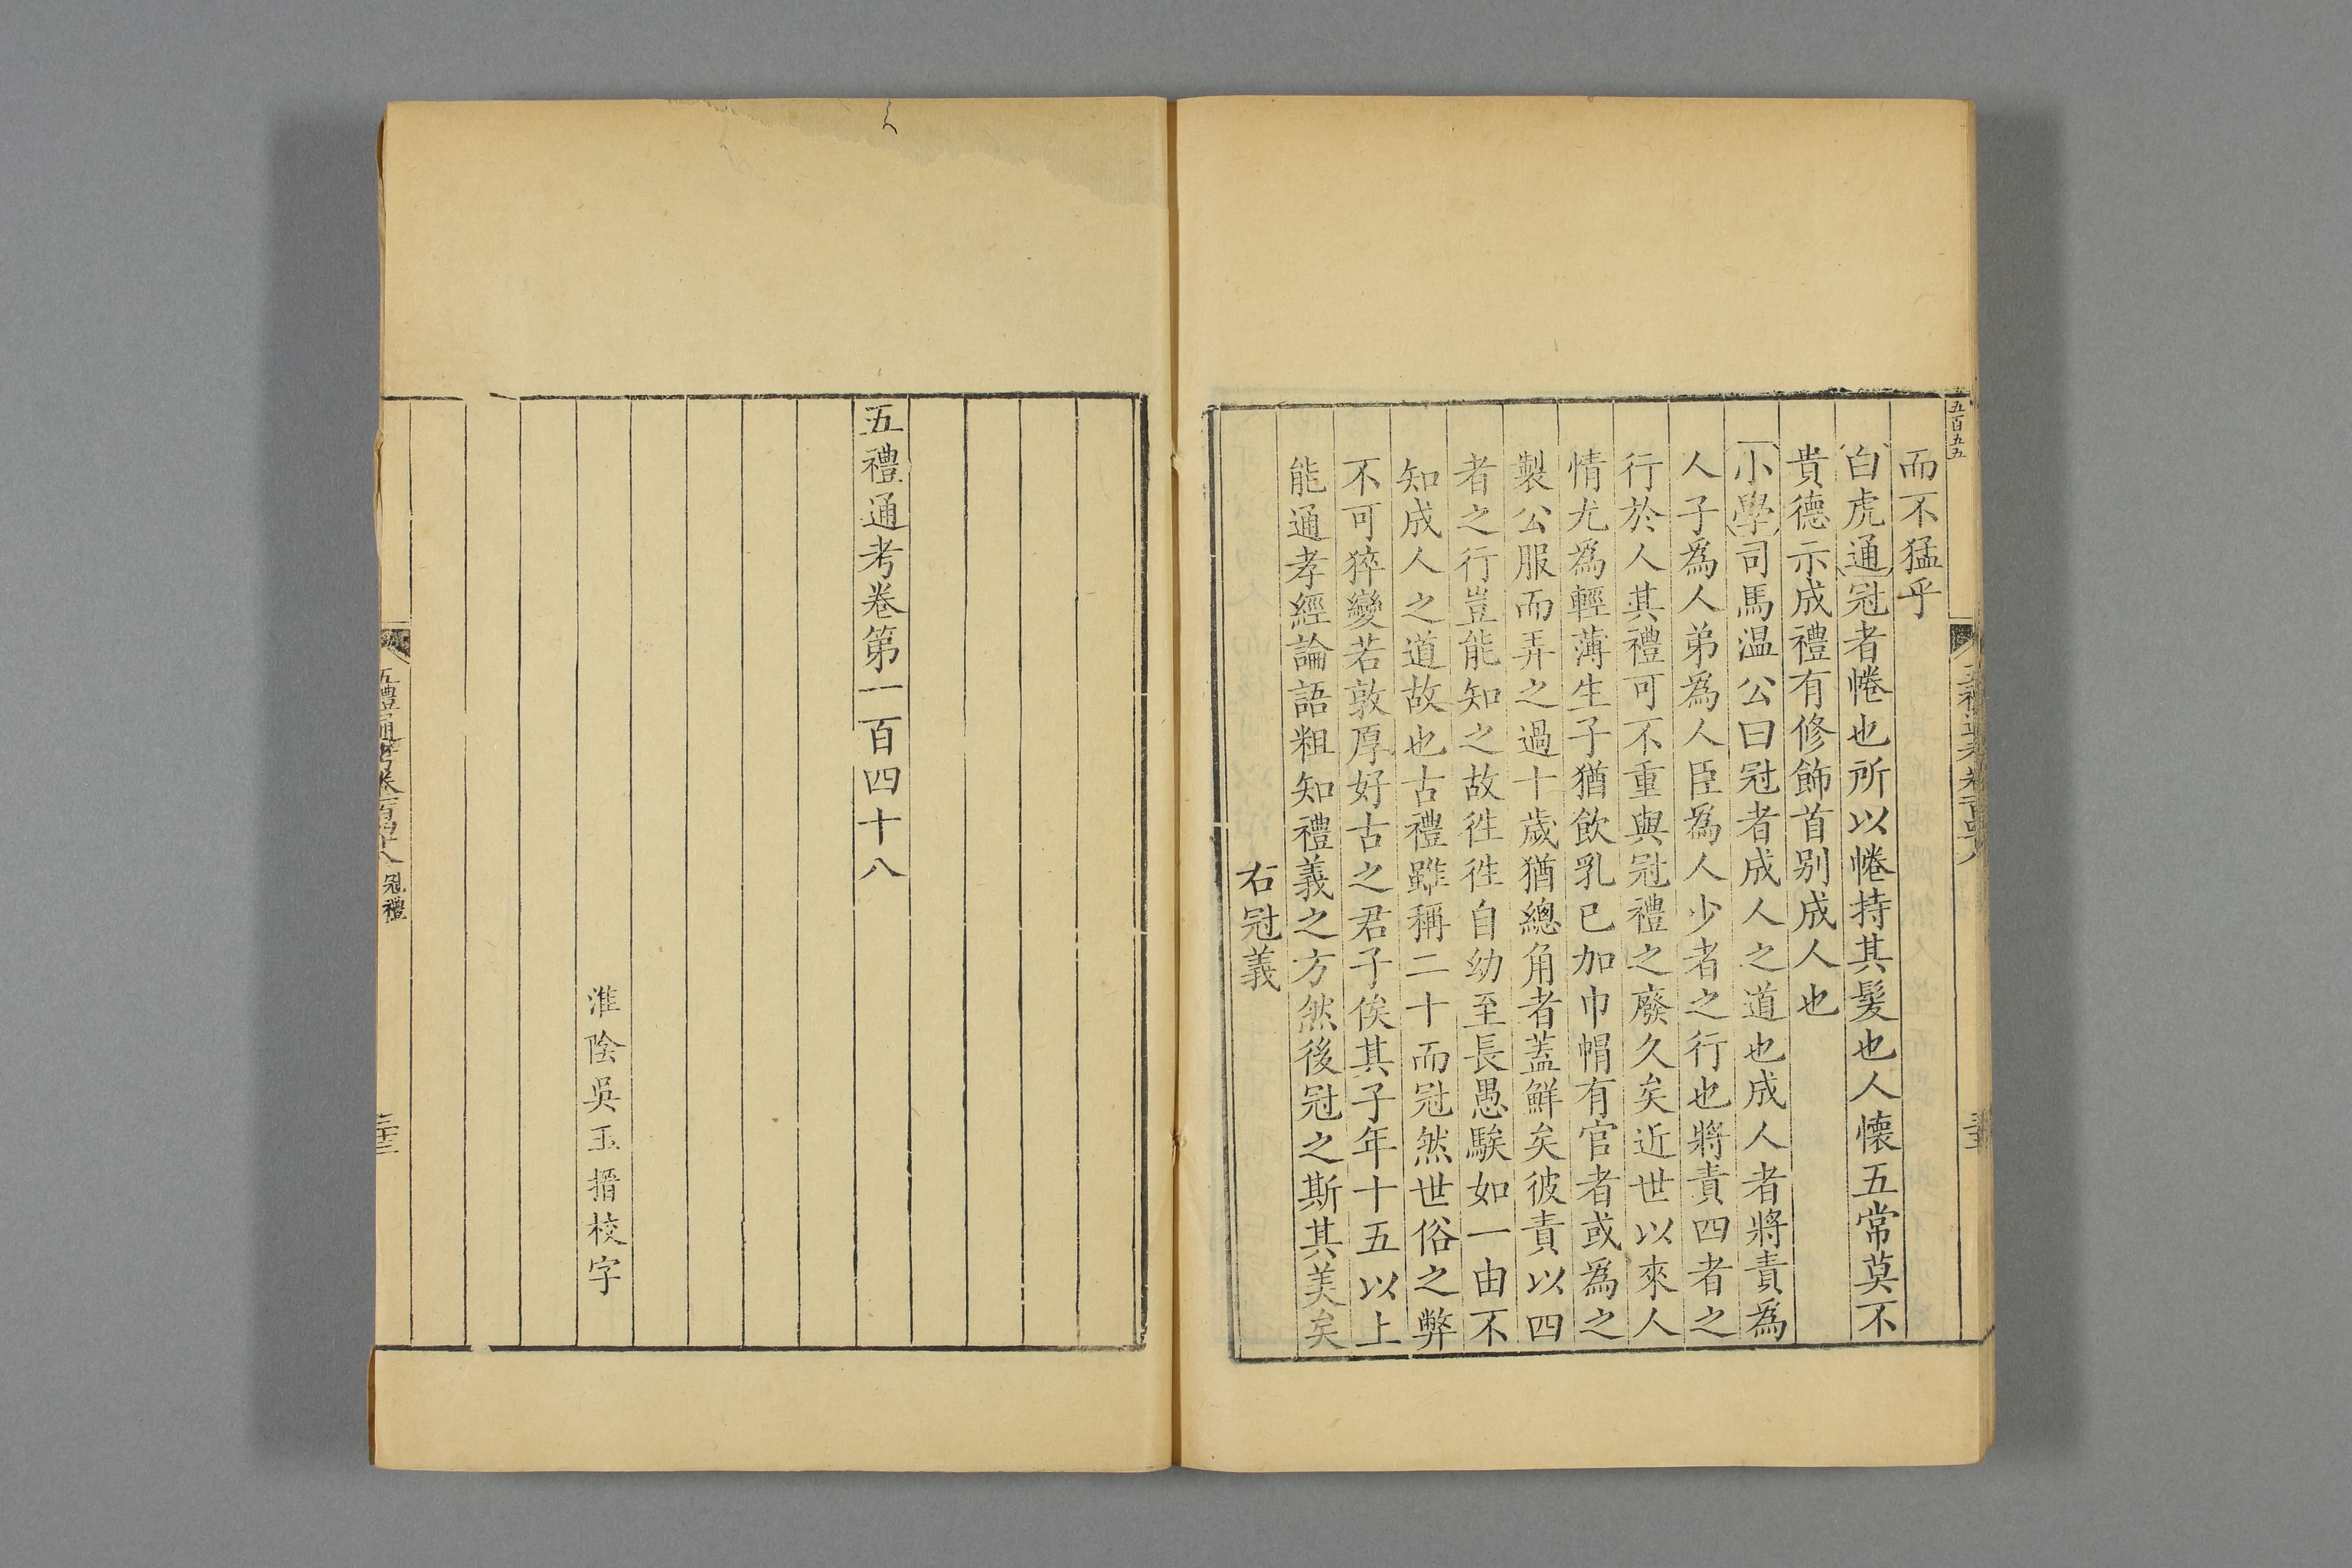 五百五五
而不猛乎
白虎通冠者惓也所以惓持其髮也人懷五常莫不
貴德示成禮有修飾首别成人也
小學司馬温公曰冠者成人之道也成人者將責為
人子爲人弟爲人臣爲人少者之行也將責四者之
行於人其禮可不重與冠禮之廢久矣近世以來人
情尤爲輕薄生子猶飲乳已加巾帽有官者或爲之
製公服而弄之過十歲猶總角者蓋鮮矣彼責以四
者之行豈能知之故徃徃自幼至長愚騃如一由不
知成人之道故也古禮雖稱二十而冠然世俗之弊
不可猝變若敦厚好古之君子俟其子年十五以上
能通孝經論語粗知禮義之方然後冠之斯其美矣
右冠義
五禮通考卷第一百四十八
淮陰吳玉搢校字
五禮通考卷一百四十八 冠禮